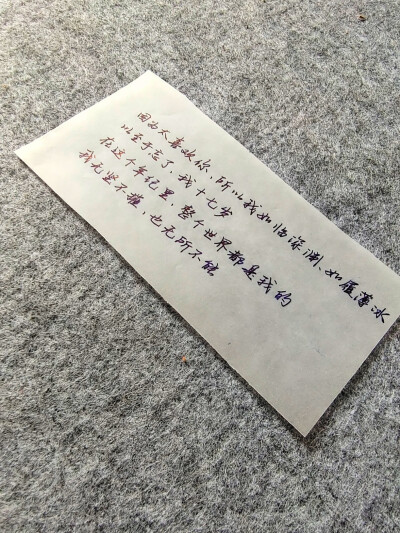 因为太喜欢你,所以我如临深渊、如履薄冰
以至于忘了,我十七岁
在这个年纪里,整个世界都是我的
我无坚不摧,也无所不能